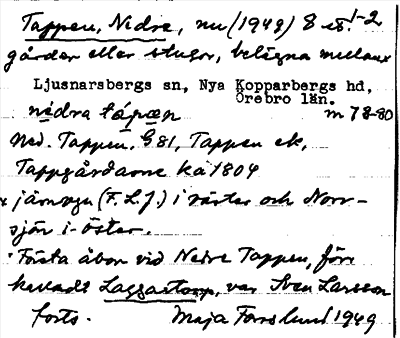 Tappen, Nedre, nu (1948) 8 st. 1-2
gårdar eller stugor, belägna mellan
Ljusnarsbergs sn, Nya Kopparbergs hd,
Örebro län.
nedra tápen m 78-80
Ned. Tappen, G 81, Tappen ek,
Tappgårdarne ka 1804
järnvgn (F.L.J.) i väster och Norr-
sjön i öster.
Första åbon vid Nedre Tappen, förr
kalladt Laggastorp, var Sven Larsson
forts. Maja Forslund 1949